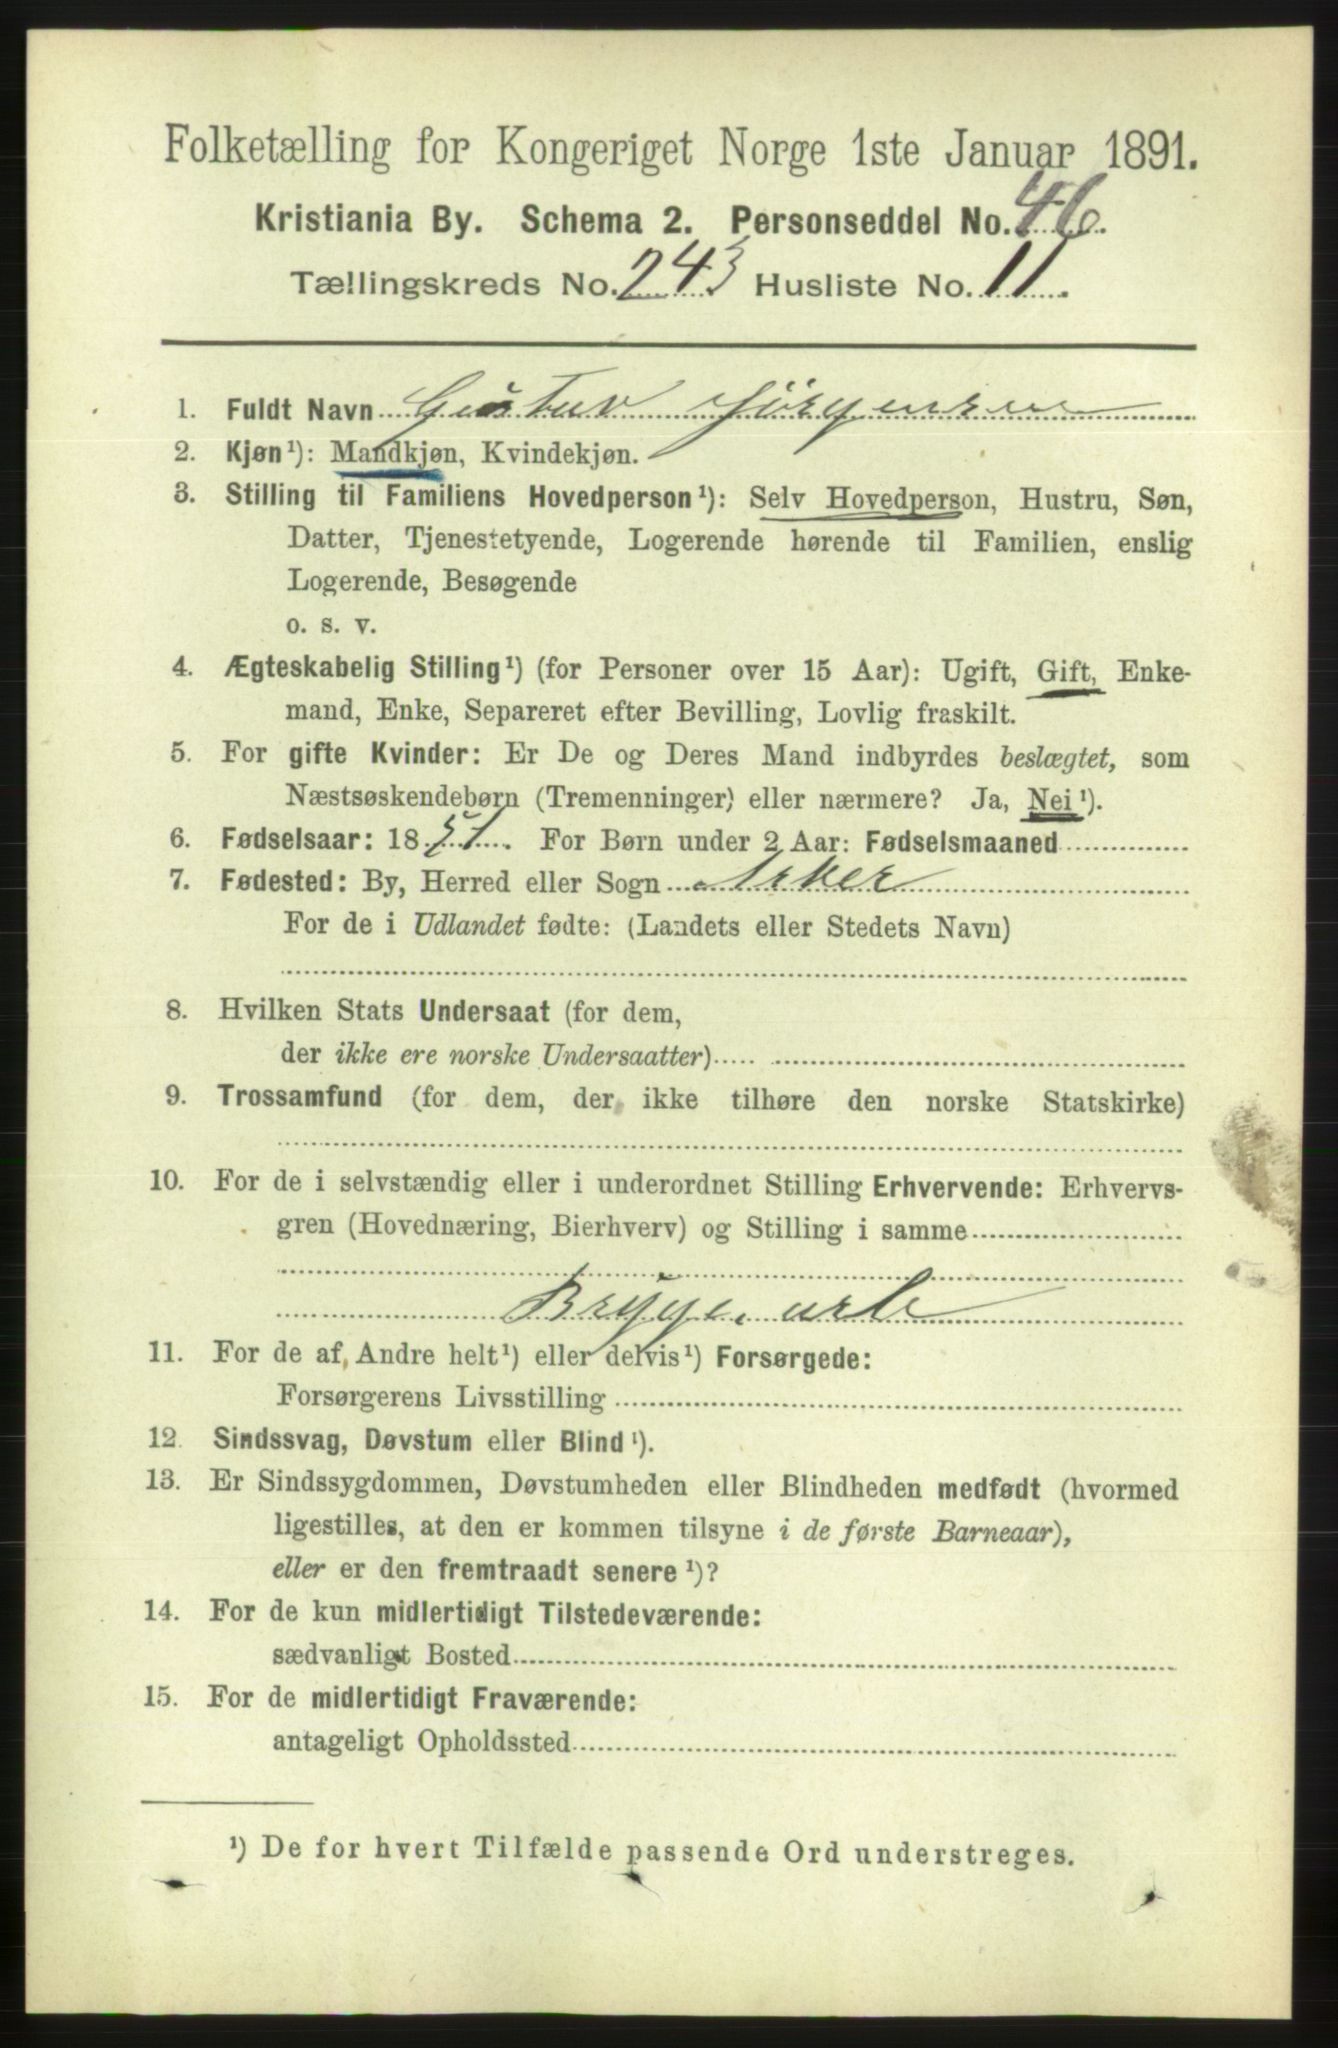 Folketælling for Kongeriget Norge 1ste Januar 1891.
Kristiania By. Schema 2. Personseddel No. 46.
Tællingskreds No. 243 Husliste No. 11.
1. Fuldt Navn Gustav Jörgensen
2. Kjøn¹): Mandkjøn, Kvindekjøn.
3. Stilling til Familiens Hovedperson¹): Selv Hovedperson, Hustru, Søn,
Datter, Tjenestetyende, Logerende hørende til Familien, enslig
Logerende, Besøgende
o. s. v.
4. Ægteskabelig Stilling¹) (for Personer over 15 Aar): Ugift, Gift, Enke-
mand, Enke, Separeret efter Bevilling, Lovlig fraskilt.
5. For gifte Kvinder: Er De og Deres Mand indbyrdes beslægtet, som
Næstsøskendebørn (Tremenninger) eller nærmere? Ja, Nei¹).
6. Fødselsaar: 1851. For Børn under 2 Aar: Fødselsmaaned
7. Fødested: By, Herred eller Sogn Aker
For de i Udlandet fødte: (Landets eller Stedets Navn)
8. Hvilken Stats Undersaat (for dem,
der ikke ere norske Undersaatter)
9. Trossamfund (for dem, der ikke tilhøre den norske Statskirke)
10. For de i selvstændig eller i underordnet Stilling Erhvervende: Erhvervs-
gren (Hovednæring, Bierhverv) og Stilling i samme
Bryggearb
11. For de af Andre helt¹) eller delvis¹) Forsørgede:
Forsørgerens Livsstilling
12. Sindssvag, Døvstum eller Blind¹).
13. Er Sindssygdommen, Døvstumheden eller Blindheden medfødt (hvormed
ligestilles, at den er kommen tilsyne i de første Barneaar),
eller er den fremtraadt senere¹)?
14. For de kun midlertidigt Tilstedeværende:
sædvanligt Bosted
15. For de midlertidigt Fraværende:
antageligt Opholdssted
¹) De for hvert Tilfælde passende Ord understreges.